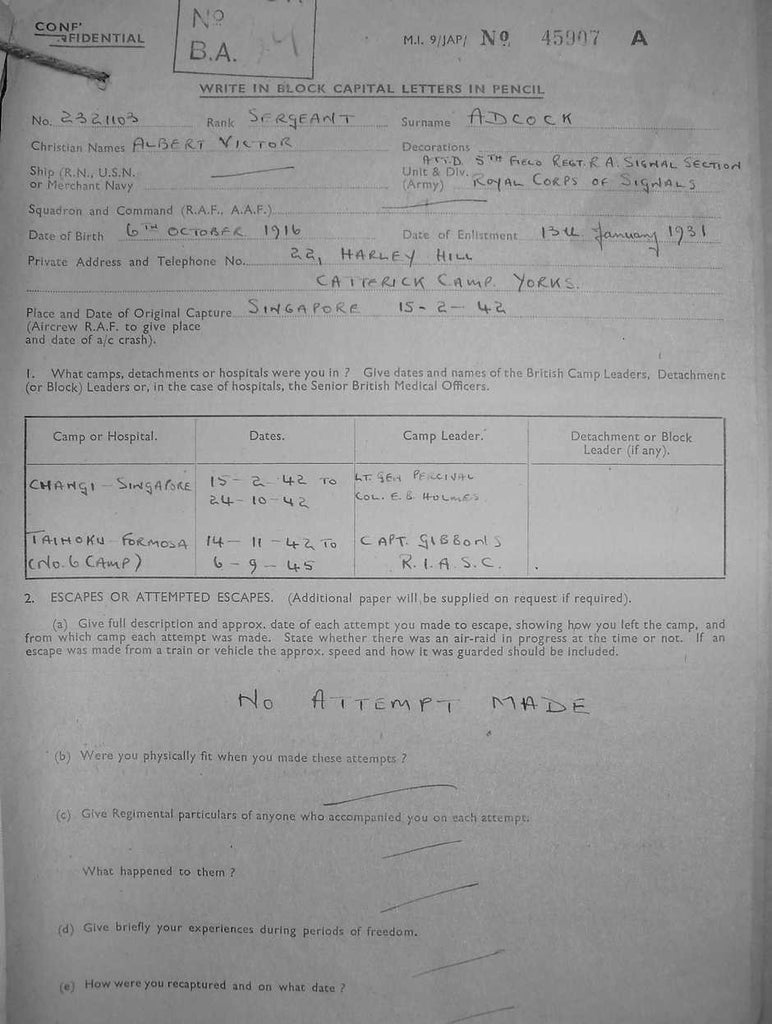 CONFIDENTIAL
No
B.A.
M.I. 9/JAP/ No 45907 A
WRITE IN BLOCK CAPITAL LETTERS IN PENCIL
No. 2321103 Rank SERGEANT Surname ADCOCK
Christian Names ALBERT VICTOR Decorations
ATTD 5TH FIELD REGT. R.A. SIGNAL SECTION
Ship (R.N., U.S.N. or Merchant Navy Unit & Div. (Army) ROYAL CORPS OF SIGNALS
Squadron and Command (R.A.F., A.A.F.)
Date of Birth 6TH OCTOBER 1916 Date of Enlistment 13th January 1931
Private Address and Telephone No. 22, HARLEY HILL
CATTERICK CAMP. YORKS.
Place and Date of Original Capture SINGAPORE 15-2-42
(Aircrew R.A.F. to give place
and date of a/c crash).
1. What camps, detachments or hospitals were you in ? Give dates and names of the British Camp Leaders, Detachment
(or Block) Leaders or, in the case of hospitals, the Senior British Medical Officers.
Camp or Hospital. Dates. Camp Leader. Detachment or Block
Leader (if any).
CHANGI - SINGAPORE 15-2-42 TO LT. GEN PERCIVAL
24-10-42 COL. E.B HOLMES.
TAIHOKU - FORMOSA 14-11-42 TO CAPT. GIBBONS
(No. 6 CAMP) 6-9-45 R.I.A.S.C.
2. ESCAPES OR ATTEMPTED ESCAPES. (Additional paper will be supplied on request if required).
(a) Give full description and approx. date of each attempt you made to escape, showing how you left the camp, and
from which camp each attempt was made. State whether there was an air-raid in progress at the time or not. If an
escape was made from a train or vehicle the approx. speed and how it was guarded should be included.
NO ATTEMPT MADE
(b) Were you physically fit when you made these attempts ?
(c) Give Regimental particulars of anyone who accompanied you on each attempt.
What happened to them ?
(d) Give briefly your experiences during periods of freedom.
(e) How were you recaptured and on what date ?